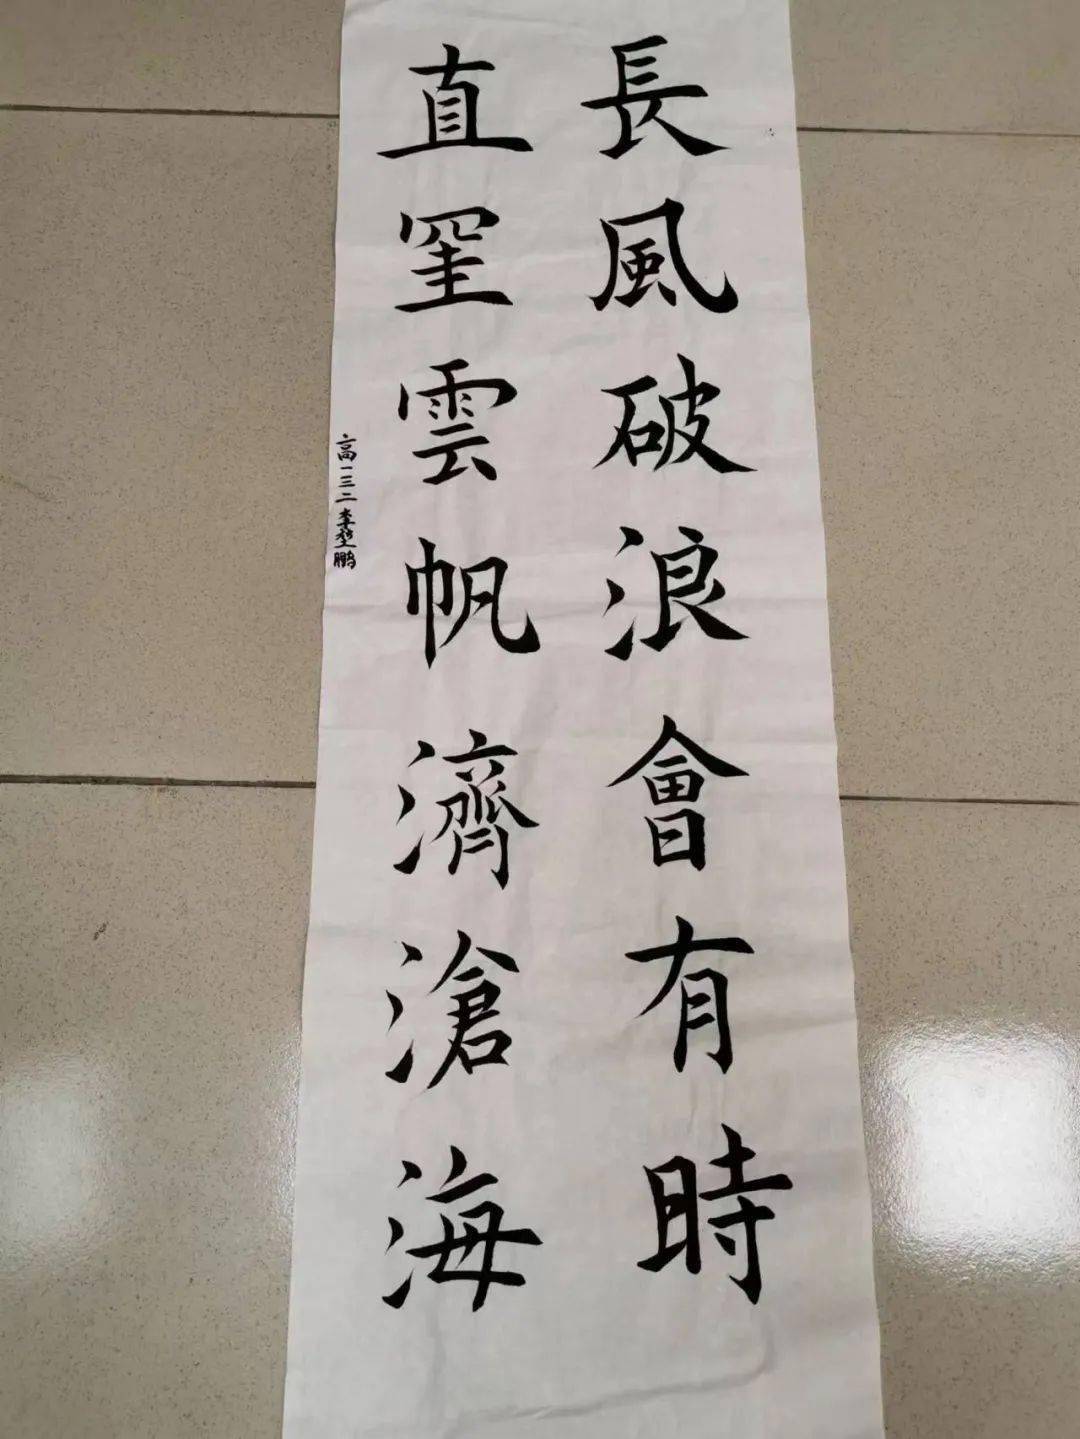 長風破浪會有時
直罣雲帆濟滄海
高一三二李鹏